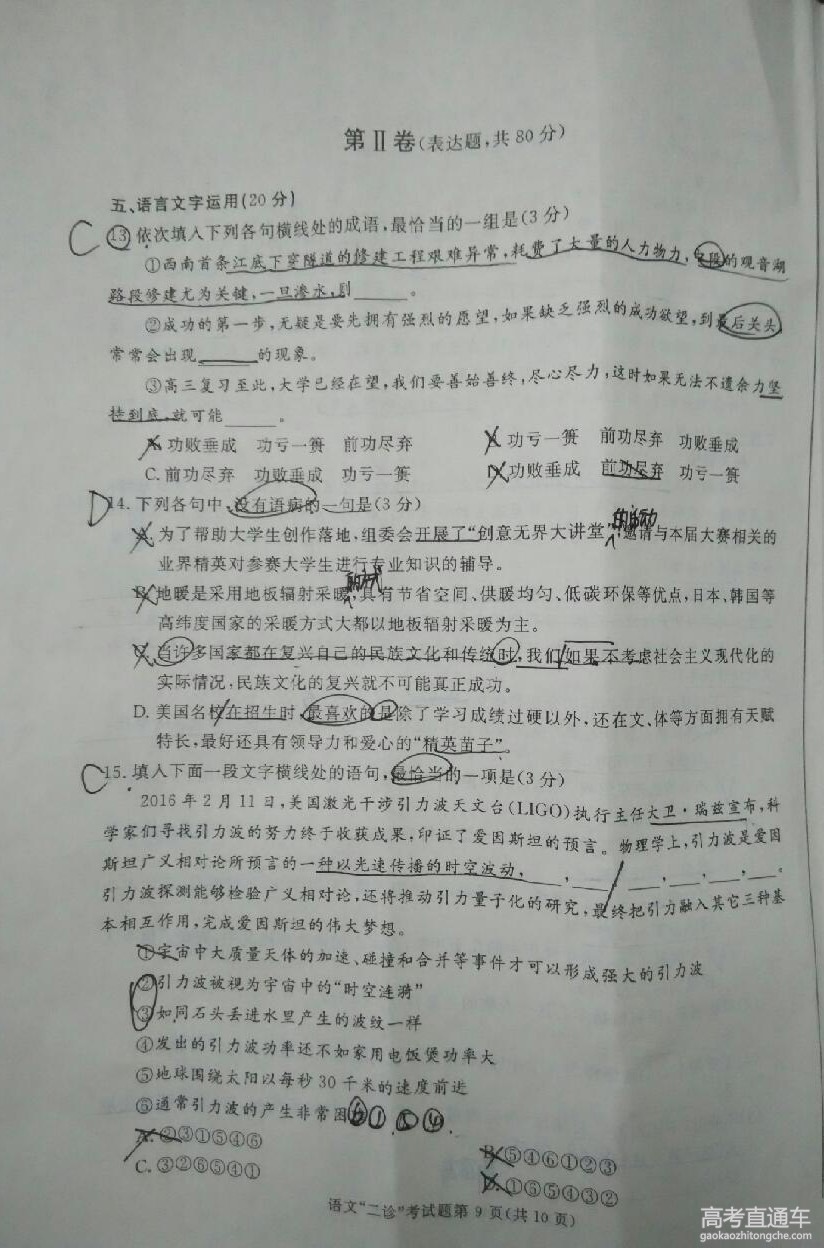 第Ⅱ卷(表达题,共80分)
五、语言文字运用(20分)
C 13.依次填入下列各句横线处的成语,最恰当的一组是(3分)
①西南首条江底下穿隧道的修建工程艰难异常,耗费了大量的人力物力,段的观音湖
路段修建尤为关键,一旦渗水,则______。
②成功的第一步,无疑是要先拥有强烈的愿望,如果缺乏强烈的成功欲望,到最后关头,
常常会出现______的现象。
③高三复习至此,大学已经在望,我们要善始善终,尽心尽力,这时如果无法不遗余力坚
持到底,就可能______。
A.功败垂成 功亏一篑 前功尽弃 B.功亏一篑 前功尽弃 功败垂成
C.前功尽弃 功败垂成 功亏一篑 D.功败垂成 前功尽弃 功亏一篑
D 14.下列各句中,没有语病的一句是(3分)
的活动
A.为了帮助大学生创作落地,组委会开展了“创意无界大讲堂”,邀请与本届大赛相关的
业界精英对参赛大学生进行专业知识的辅导。
的方式
B.地暖是采用地板辐射采暖,具有节省空间、供暖均匀、低碳环保等优点,日本、韩国等
高纬度国家的采暖方式大都以地板辐射采暖为主。
C.当许多国家都在复兴自己的民族文化和传统时,我们如果不考虑社会主义现代化的
实际情况,民族文化的复兴就不可能真正成功。
D.美国名校在招生时,最喜欢的是除了学习成绩过硬以外,还在文、体等方面拥有天赋
特长,最好还具有领导力和爱心的“精英苗子”。
C 15.填入下面一段文字横线处的语句,最恰当的一项是(3分)
2016年2月11日,美国激光干涉引力波天文台(LIGO)执行主任大卫·瑞兹宣布,科
学家们寻找引力波的努力终于收获成果,印证了爱因斯坦的预言。物理学上,引力波是爱因
斯坦广义相对论所预言的一种以光速传播的时空波动,___,___。___,___,___,___。
引力波探测能够检验广义相对论,还将推动引力量子化的研究,最终把引力融入其它三种基
本相互作用,完成爱因斯坦的伟大梦想。
①宇宙中大质量天体的加速、碰撞和合并等事件才可以形成强大的引力波
②引力波被视为宇宙中的“时空涟漪”
③如同石头丢进水里产生的波纹一样
④发出的引力波功率还不如家用电饭煲功率大
⑤地球围绕太阳以每秒30千米的速度前进
⑥通常引力波的产生非常困 ⑥①⑤④
A.②③①⑤④⑥ B.⑤④⑥①②③
C.③②⑥⑤④① D.①⑥⑤④③②
语文“二诊”考试题第9页(共10页)
高考直通车
gaokaozhitongche.com